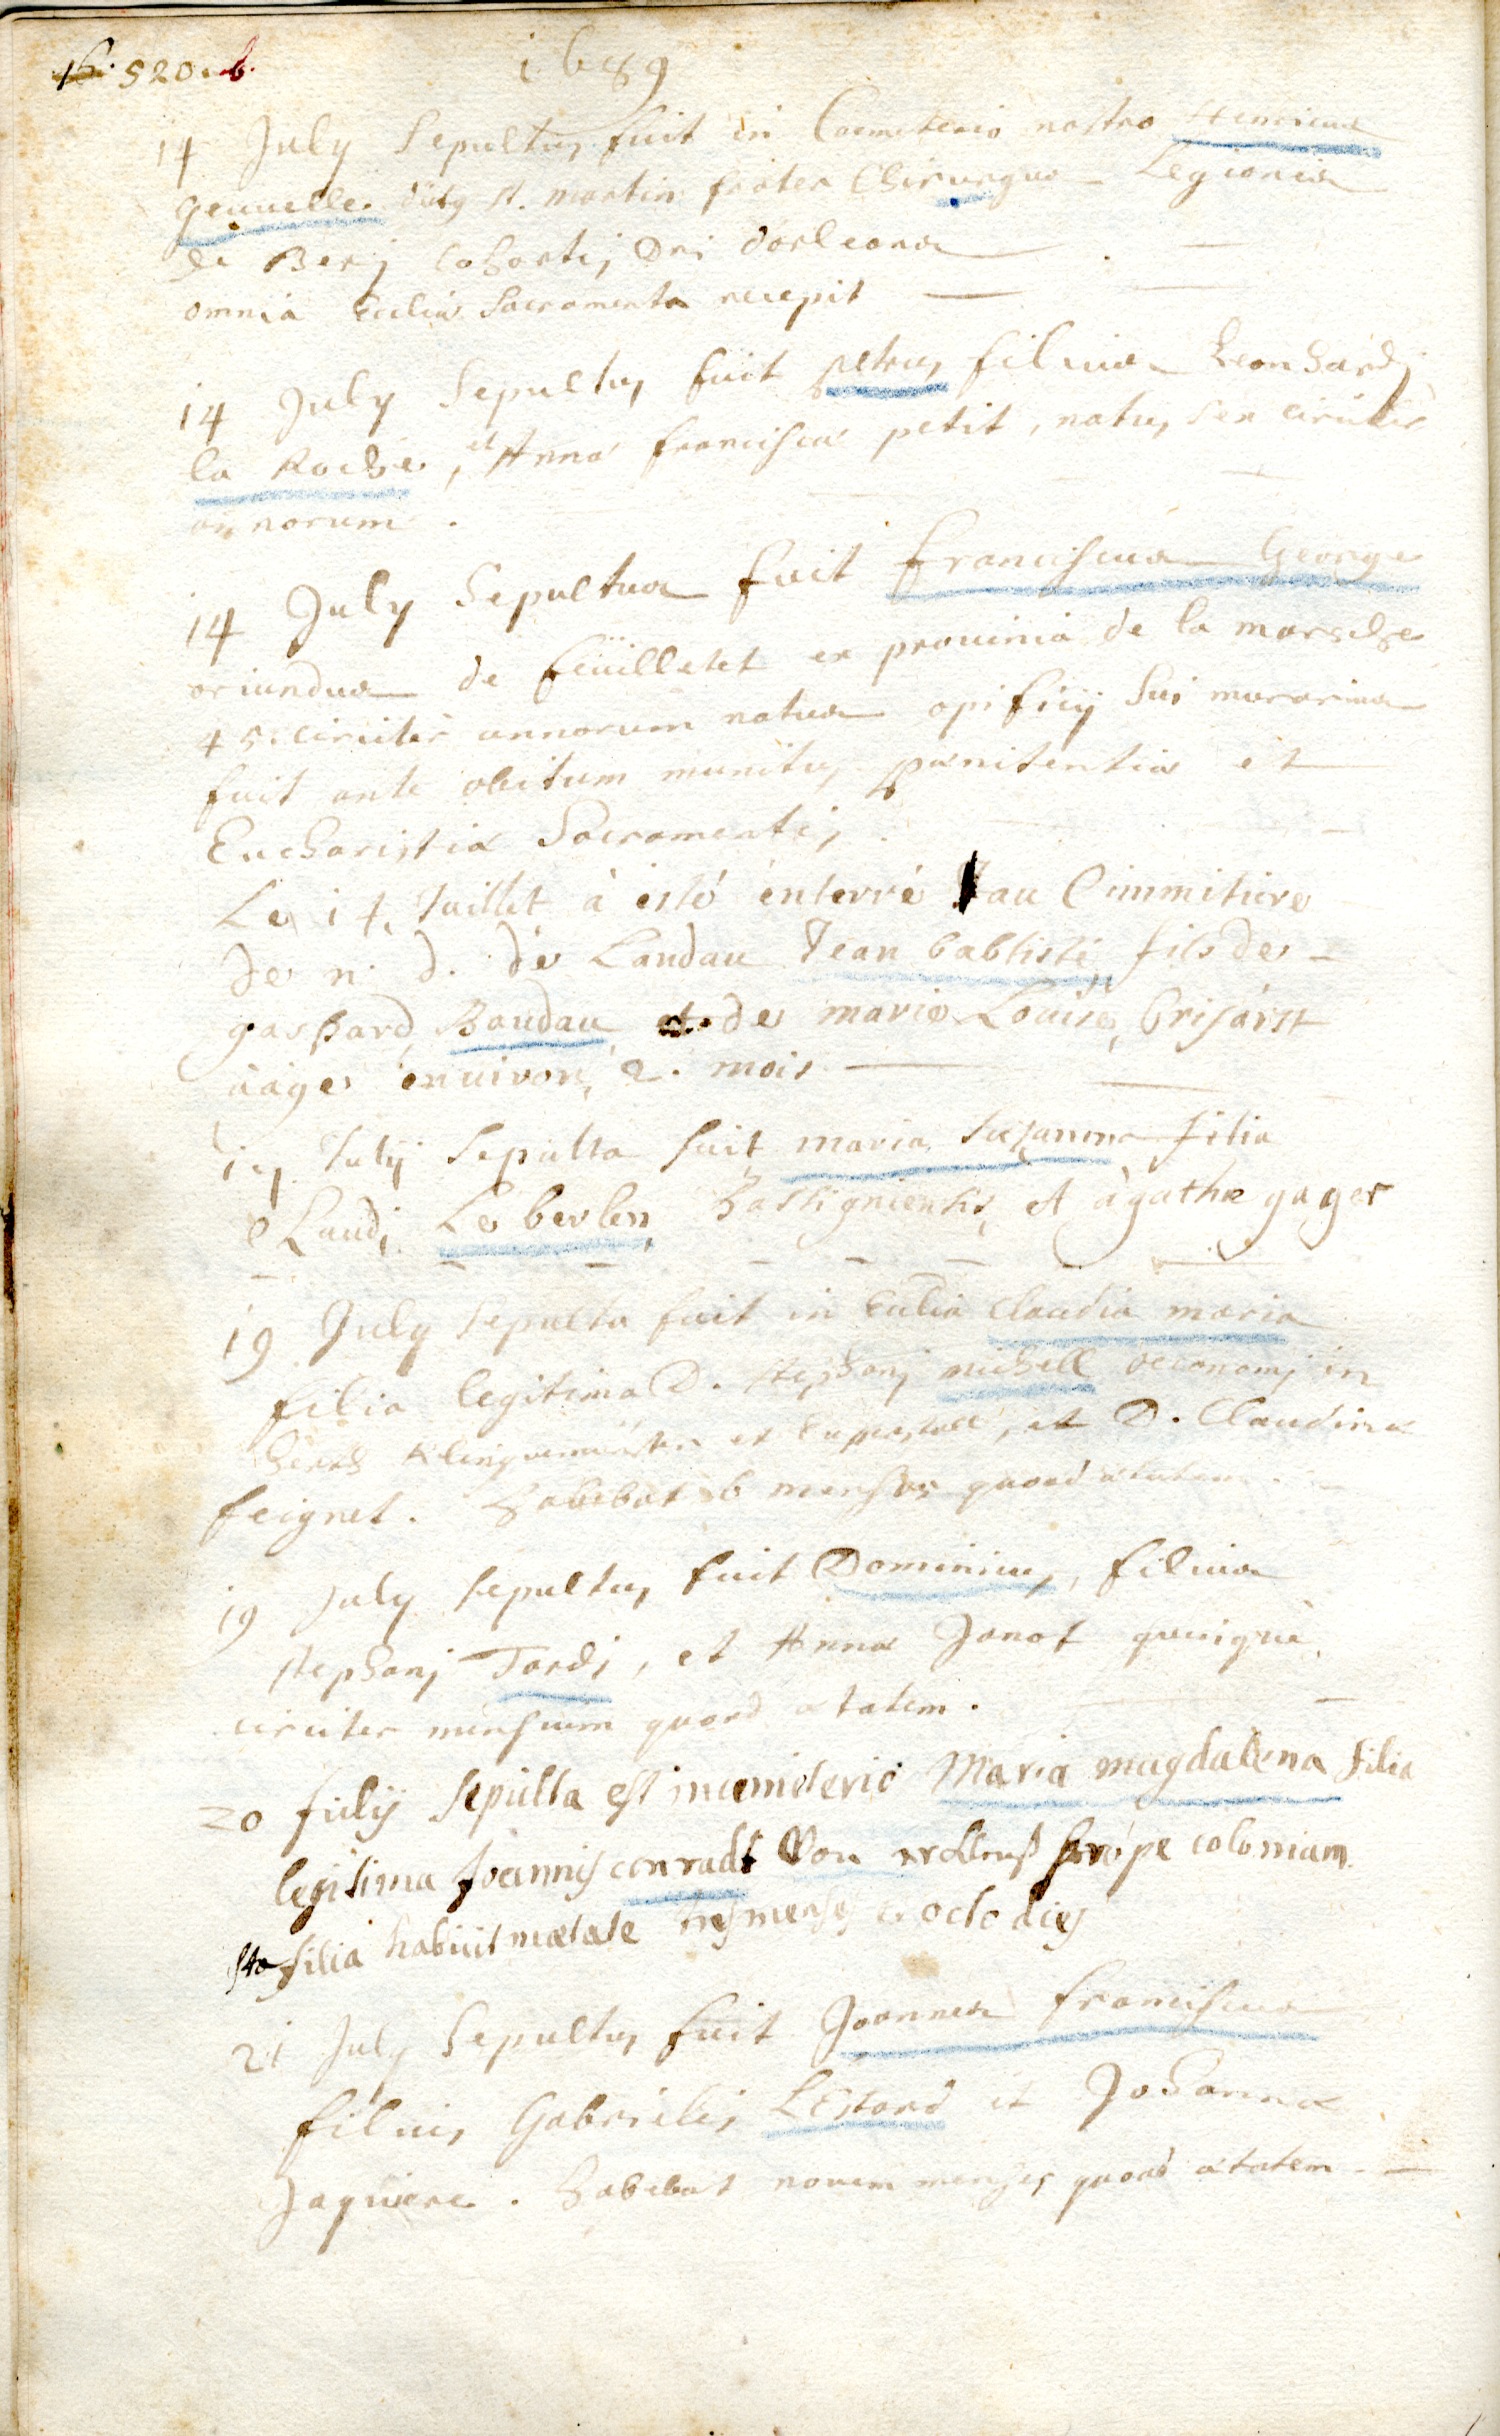 520 b.
1689
14 July Sepultus fuit in Coemeterio nostro Henricus
Genuelle dictus st. martin frater Chirurgus Legionis
de Berj Cohortis Dni dorleans
omnia Ecclia Sacramenta recepit
14 July Sepultus fuit petrus filius Leonhardj
la Roche, et Anna francisca petit, natus sex circiter
annorum.
14 July Sepultus fuit Franciscus George
oriundus de feüilletet ex prouincia de la marche
45. circiter annorum natus opificij Sui murarius
fuit ante obitum munitus pænitentiæ et
Eucharistiæ Sacramentis
Le 14. Juillet à esté énterré au Cimmitiere
de n. d. de Landau Jean babtiste fils de
gaspard Baudau et de marie Louise brisarst
áage énuiron 2. mois
Julij Sepulta fuit maria Suzanna filia
Claudi Le berlen et ágathæ gager
19 July sepulta fuit in Ecclia Claudia maria
filia legitima D. stephanj michell oeconomj in
Klinguemünster et , et D. Claudinæ
feignet. habebat 6 menses quoad ætatem
19 July sepultus fuit Dominicus, filius
stephanj Tardi, et Annæ Janot quinque
circiter mensium quoad ætatem.
20 Julij sepulta est in cemiterio Maria magdalena filia
legitima Joannis conradt Von prope coloniam
sta filia habuit in ætate tres menses et octo dies
21 July Sepultus fuit Joannes franciscus
filius Gabrielis LEstard et Johanna
Jaquiere. habebat novem menses quoad ætatem